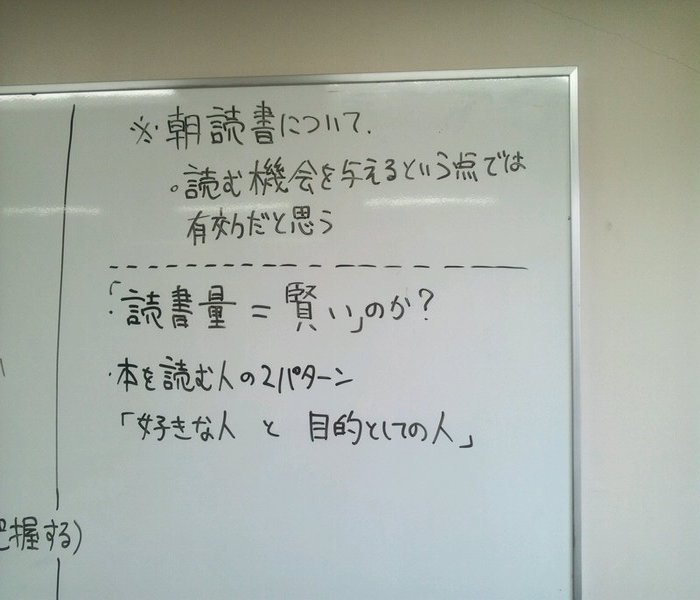 ※・朝読書について.
。読む機会を与えるという点では
有効だと思う
・「読書量 = 賢い」のか?
・本を読む人の2パターン
「好きな人 と 目的としての人」
把握する)